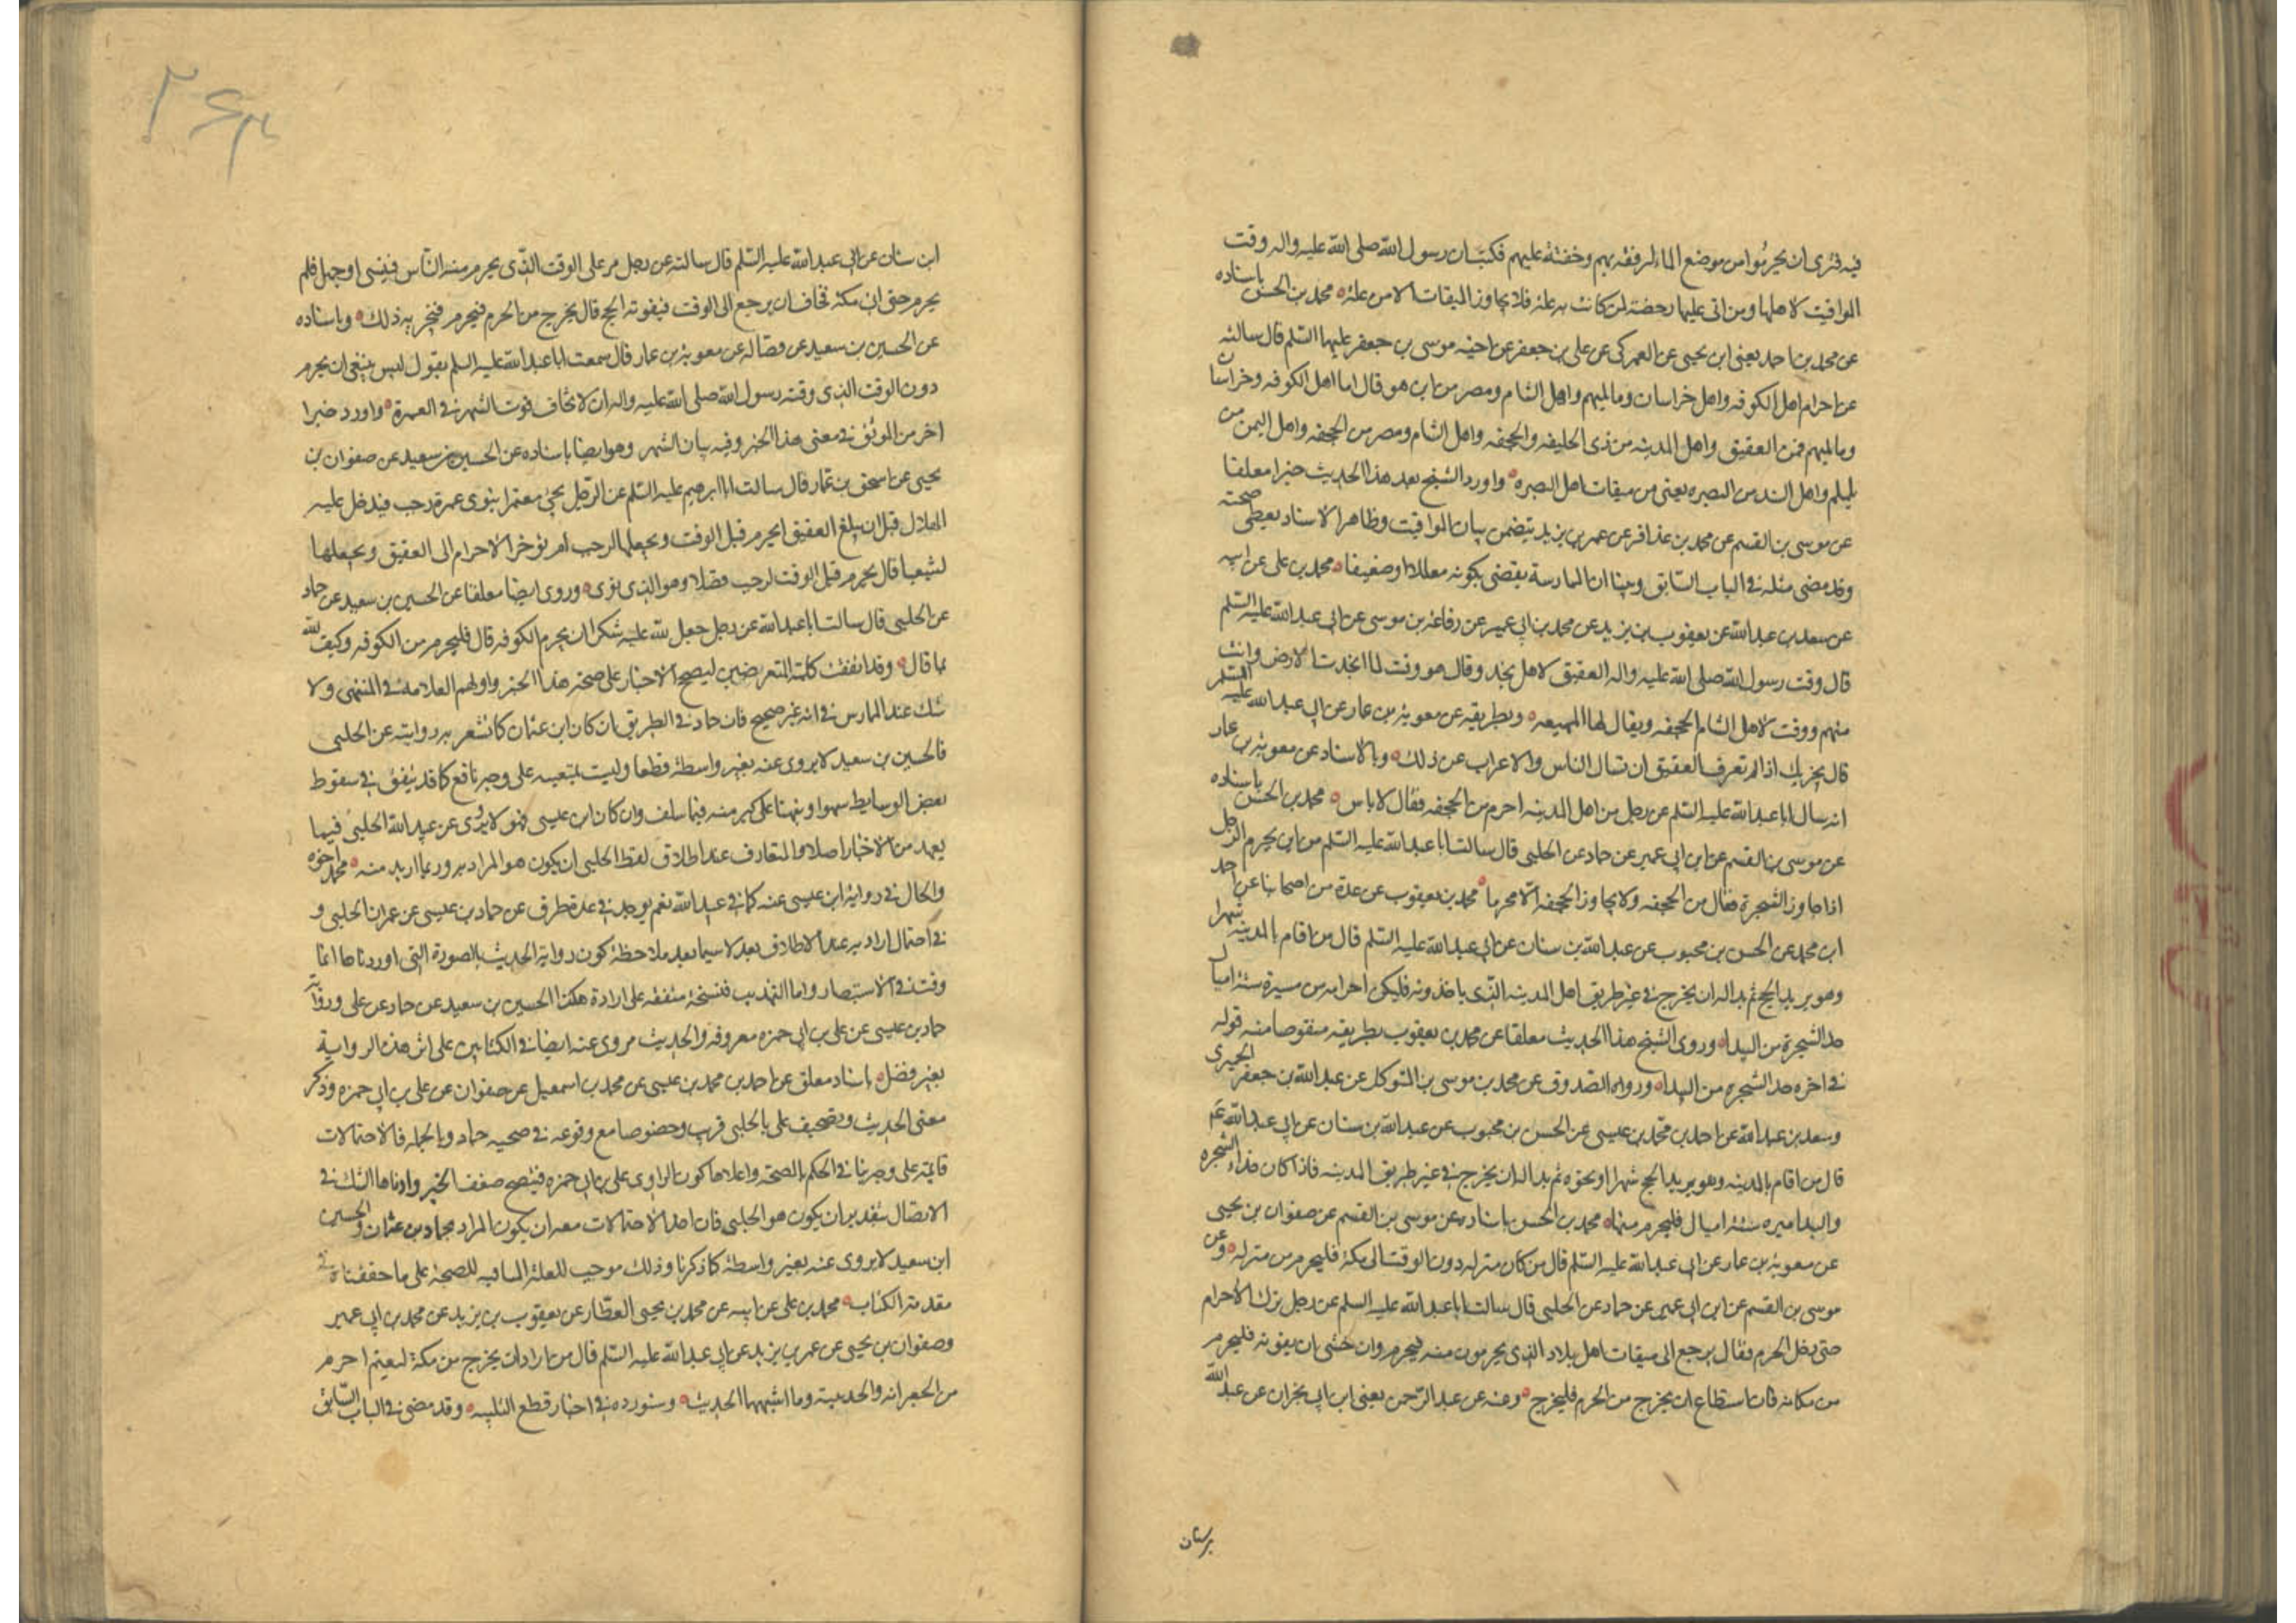 فيه فترى ان يحرموا من موضع الماء لرفقه بهم وخفته عليهم فكتب ان رسول الله صلى الله عليه واله وقت
المواقيت لاهلها ومن اتى عليها رخصة لمن كانت به علة فلا يجاوز الميقات الا من علة محمد بن الحسن باسناده
عن محمد بن احمد يعني ابن يحيى عن العمركى عن على بن جعفر عن اخيه موسى بن جعفر عليهما السلم قال سالته
عن احرام اهل الكوفه واهل خراسان وما يليهم واهل الشام ومصر من اين هو قال اما اهل الكوفه وخراسان
وما يليهم فمن العقيق واهل المدينه من ذى الحليفه والجحفه واهل الشام ومصر من الجحفه واهل اليمن من
يلملم واهل السند من البصره يعنى من ميقات اهل البصره واورد الشيخ بعد هذا الحديث خبرا معلقا
عن موسى بن القسم عن محمد بن عذافر عن عمر بن يزيد يتضمن بيان المواقيت وظاهر الاسناد يعطى صحته
وقد مضى مثله فى الباب السابق وبينا ان الممارسة يقضى بكونه معللا او ضعيفا محمد بن على عن ابيه
عن سعد بن عبد الله عن يعقوب بن يزيد عن محمد بن ابى عمير عن رفاعة بن موسى عن ابى عبد الله عليه السلم
قال وقت رسول الله صلى الله عليه واله العقيق لاهل نجد وقال هو وقت لما انجدت الارض وانت
منهم ووقت لاهل الشام الجحفه ويقال لها المهيعه وبطريقه عن معوية بن عمار عن ابى عبد الله عليه السلم
قال يجزيك اذا لم تعرف العقيق ان تسال الناس والاعراب عن ذلك وبالاسناد عن معوية بن عمار
انه سال ابا عبد الله عليه السلم عن رجل من اهل المدينه احرم من الجحفه فقال لا باس محمد بن الحسن باسناده
عن موسى بن القسم عن ابن ابى عمير عن حماد عن الحلبى قال سالت ابا عبد الله عليه السلم من اين يحرم الرجل
اذا جاوز الشجرة فقال من الجحفه ولا يجاوز الجحفه الا محرما محمد بن يعقوب عن عدة من اصحابنا عن احمد
ابن محمد عن الحسن بن محبوب عن عبد الله بن سنان عن ابى عبد الله عليه السلم قال من اقام بالمدينه شهرا
وهو يريد الحج ثم بدا له ان يخرج فى غير طريق اهل المدينه الذى ياخذونه فليكن احرامه من مسيرة ستة اميال
حد الشجرة من البيداء وروى الشيخ هذا الحديث معلقا عن محمد بن يعقوب بطريقه منقوصا منه قوله
فى اخره حد الشجره من البيداء ورواه الصدوق عن محمد بن موسى بن المتوكل عن عبد الله بن جعفر الحميرى
وسعد بن عبد الله عن احمد بن محمد بن عيسى عن الحسن بن محبوب عن عبد الله بن سنان عن ابى عبد الله عم
قال من اقام بالمدينه وهو يريد الحج شهرا او نحوه ثم بدا له ان يخرج فى غير طريق المدينه فاذا كان حذاء الشجره
والبيدا مسيره ستة اميال فليحرم منها محمد بن الحسن باسناده عن موسى بن القسم عن صفوان بن يحيى
عن معوية بن عمار عن ابى عبد الله عليه السلم قال من كان منزله دون الوقت الى مكة فليحرم من منزله وعن
موسى بن القسم عن ابن ابى عمير عن حماد عن الحلبى قال سالت ابا عبد الله عليه السلم عن رجل ترك الاحرام
حتى دخل الحرم فقال يرجع الى ميقات اهل بلاد الذى يحرمون منه فيحرم وان خشى ان يفوته فليحرم
من مكانه فان استطاع ان يخرج من الحرم فليخرج وعنه عن عبد الرحمن يعنى ابن ابى نجران عن عبد الله
بن سنان
ابن سنان عن ابى عبد الله عليه السلم قال سالته عن رجل مر على الوقت الذى يحرم منه الناس فنسى او جهل فلم
يحرم حتى اتى مكة فخاف ان يرجع الى الوقت فيفوته الحج قال يخرج من الحرم فيحرم فيجزيه ذلك وباسناده
عن الحسين بن سعيد عن فضاله عن معوية بن عمار قال سمعت ابا عبد الله عليه السلم يقول ليس ينبغى ان يحرم
دون الوقت الذى وقته رسول الله صلى الله عليه واله الا ان يخاف فوت الشهر فى العمرة واورد خبرا
اخر من الموثق فى معنى هذا الخبر وفيه بيان الشهر وهو ايضا باسناده عن الحسين بن سعيد عن صفوان بن
يحيى عن اسحق بن عمار قال سالت ابا ابرهيم عليه السلم عن الرجل يجئ معتمرا ينوى عمرة رجب فيدخل عليه
الهلال قبل ان يبلغ العقيق ايحرم قبل الوقت ويجعلها لرجب ام يؤخر الاحرام الى العقيق ويجعلها
لشعبان قال يحرم قبل الوقت لرجب فضلا وهو الذى نوى وروى ايضا معلقا عن الحسين بن سعيد عن حماد
عن الحلبى قال سالت ابا عبد الله عن رجل جعل لله عليه شكرا ان يحرم الكوفه قال فليحرم من الكوفه وليف لله
بما قال وقد اتفقت كلمة المتعرضين لتصحيح الاخبار على صحة هذا الخبر واولهم العلامة فى المنتهى ولا
شك عند الممارس فى انه غير صحيح فان حماد فى الطريق ان كان ابن عثمان كما تشعر به روايته عن الحلبى
فالحسين بن سعيد لا يروى عنه بغير واسطة قطعا وليست بمتعينه على وجه نافع كما قد يتفق فى سقوط
بعض الوسايط سهوا ونبهنا على كثير منه فيما سلف وان كان ابن عيسى فهو لا يروى عن عبيد الله الحلبى فيما
يعهد من الاخبار اصلا والمتعارف عند اطلاق لفظ الحلبى ان يكون هو المراد به وربما اريد منه محمد اخوه
والحال فى رواية ابن عيسى عنه كما فى عبيد الله نعم يوجد فى عدة طرق عن حماد بن عيسى عن عمران الحلبى و
فى احتمال ارادته عند الاطلاق بعد لا سيما بعد ملاحظة كون رواية الحديث بالصورة التى اوردناها انما
وقت فى الاستبصار واما التهذيب فنسخه متفقه على ايراده هكذا الحسين بن سعيد عن حماد عن على ورواية
حماد بن عيسى عن على بن ابى حمزه معروفه والحديث مروى عنه ايضا فى الكتابين على اثر هذه الرواية
بغير فصل باسناد معلق عن احمد بن محمد بن عيسى عن محمد بن اسمعيل عن صفوان عن على بن ابى حمزه وذكر
معنى الحديث وتصحيف على بالحلبى قريب وخصوصا مع وقوعه فى صحبه حماد وبالجمله فالاحتمالات
قائمة على وجه ينافى الحكم بالصحة واعلاها كون الراوى على بن ابى حمزه فيتضح ضعف الخبر وادناها الشك فى
الاتصال بتقدير ان يكون هو الحلبى فان احد الاحتمالات معه ان يكون المراد بحماد بن عثمان والحسين
ابن سعيد لا يروى عنه بغير واسطة كما ذكرنا وذلك موجب للعلة المنافيه للصحة على ما حققناه فى
مقدمة الكتاب محمد بن على عن ابيه عن محمد بن يحيى العطار عن يعقوب بن يزيد عن محمد بن ابى عمير
وصفوان بن يحيى عن عمر بن يزيد عن ابى عبد الله عليه السلم قال من اراد ان يخرج من مكة ليعتمر احرم
من الجعرانه والحديبية وما اشبههما الحديث وسنورده فى اخبار قطع التلبيه وقد مضى فى الباب السابق